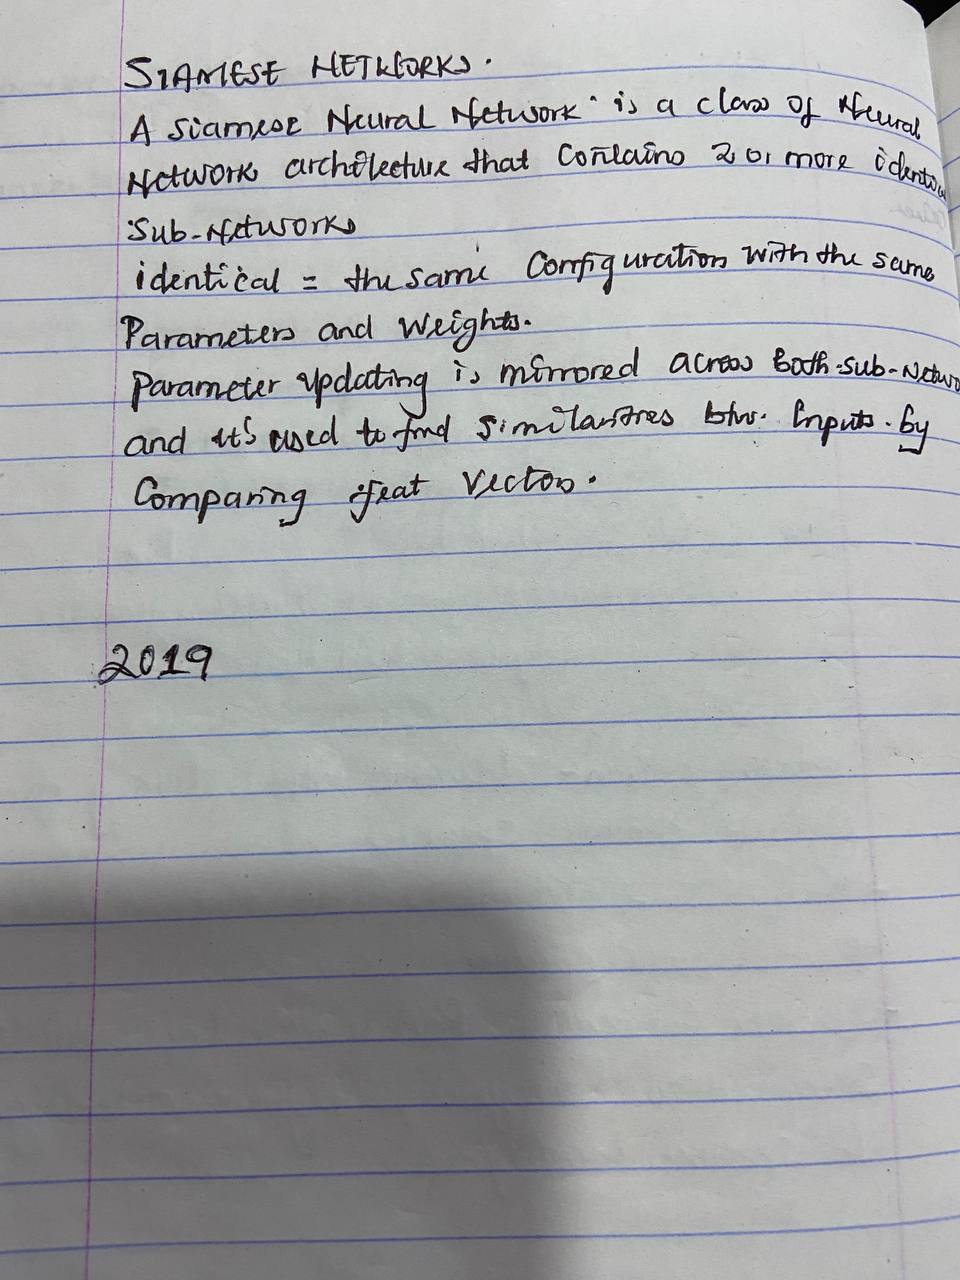 SIAMESE NETWORKS.
A Siamese Neural Network is a class of Neural
Network architecture that contains 2 or more
Sub-Networks
identical = the same configuration with the same
Parameters and Weights.
Parameter updating is mirrored across both sub-
and it's used to find similarities btw. inputs. by
Comparing feat vectors.
2019